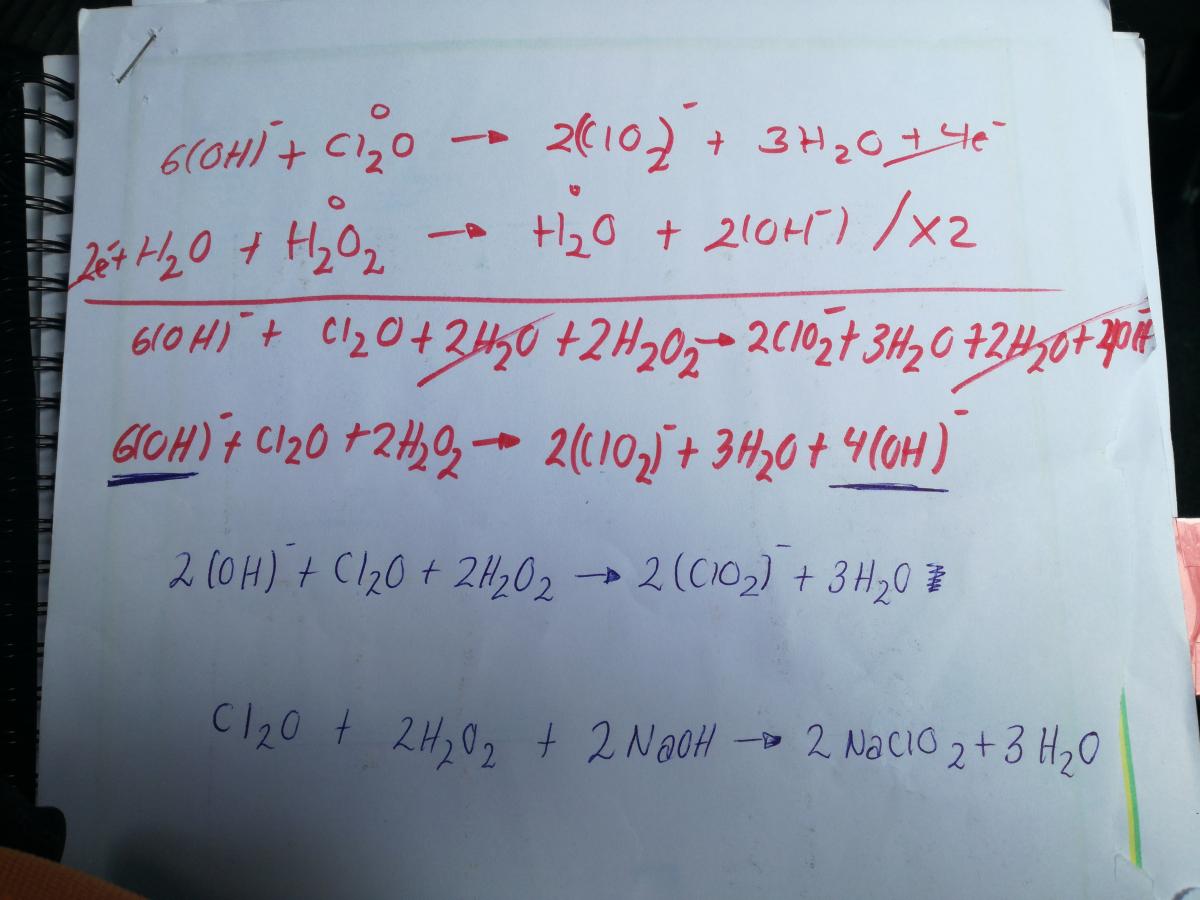 6(OH)⁻ + Cl₂O → 2(ClO₂)⁻ + 3H₂O + 4e⁻
2e⁻ + H₂O + H₂O₂ → H₂O + 2(OH⁻) / X2
6(OH)⁻ + Cl₂O + 2H₂O + 2H₂O₂ → 2ClO₂⁻ + 3H₂O + 2H₂O +
6(OH)⁻ + Cl₂O + 2H₂O₂ → 2(ClO₂)⁻ + 3H₂O + 4(OH)⁻
2(OH)⁻ + Cl₂O + 2H₂O₂ → 2(ClO₂)⁻ + 3H₂O
Cl₂O + 2H₂O₂ + 2NaOH → 2NaClO₂ + 3H₂O